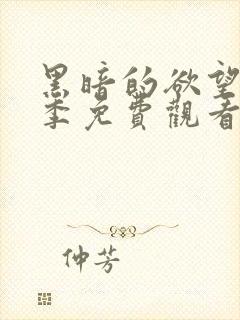 黑暗的欲望
季免費觀看
仲芳